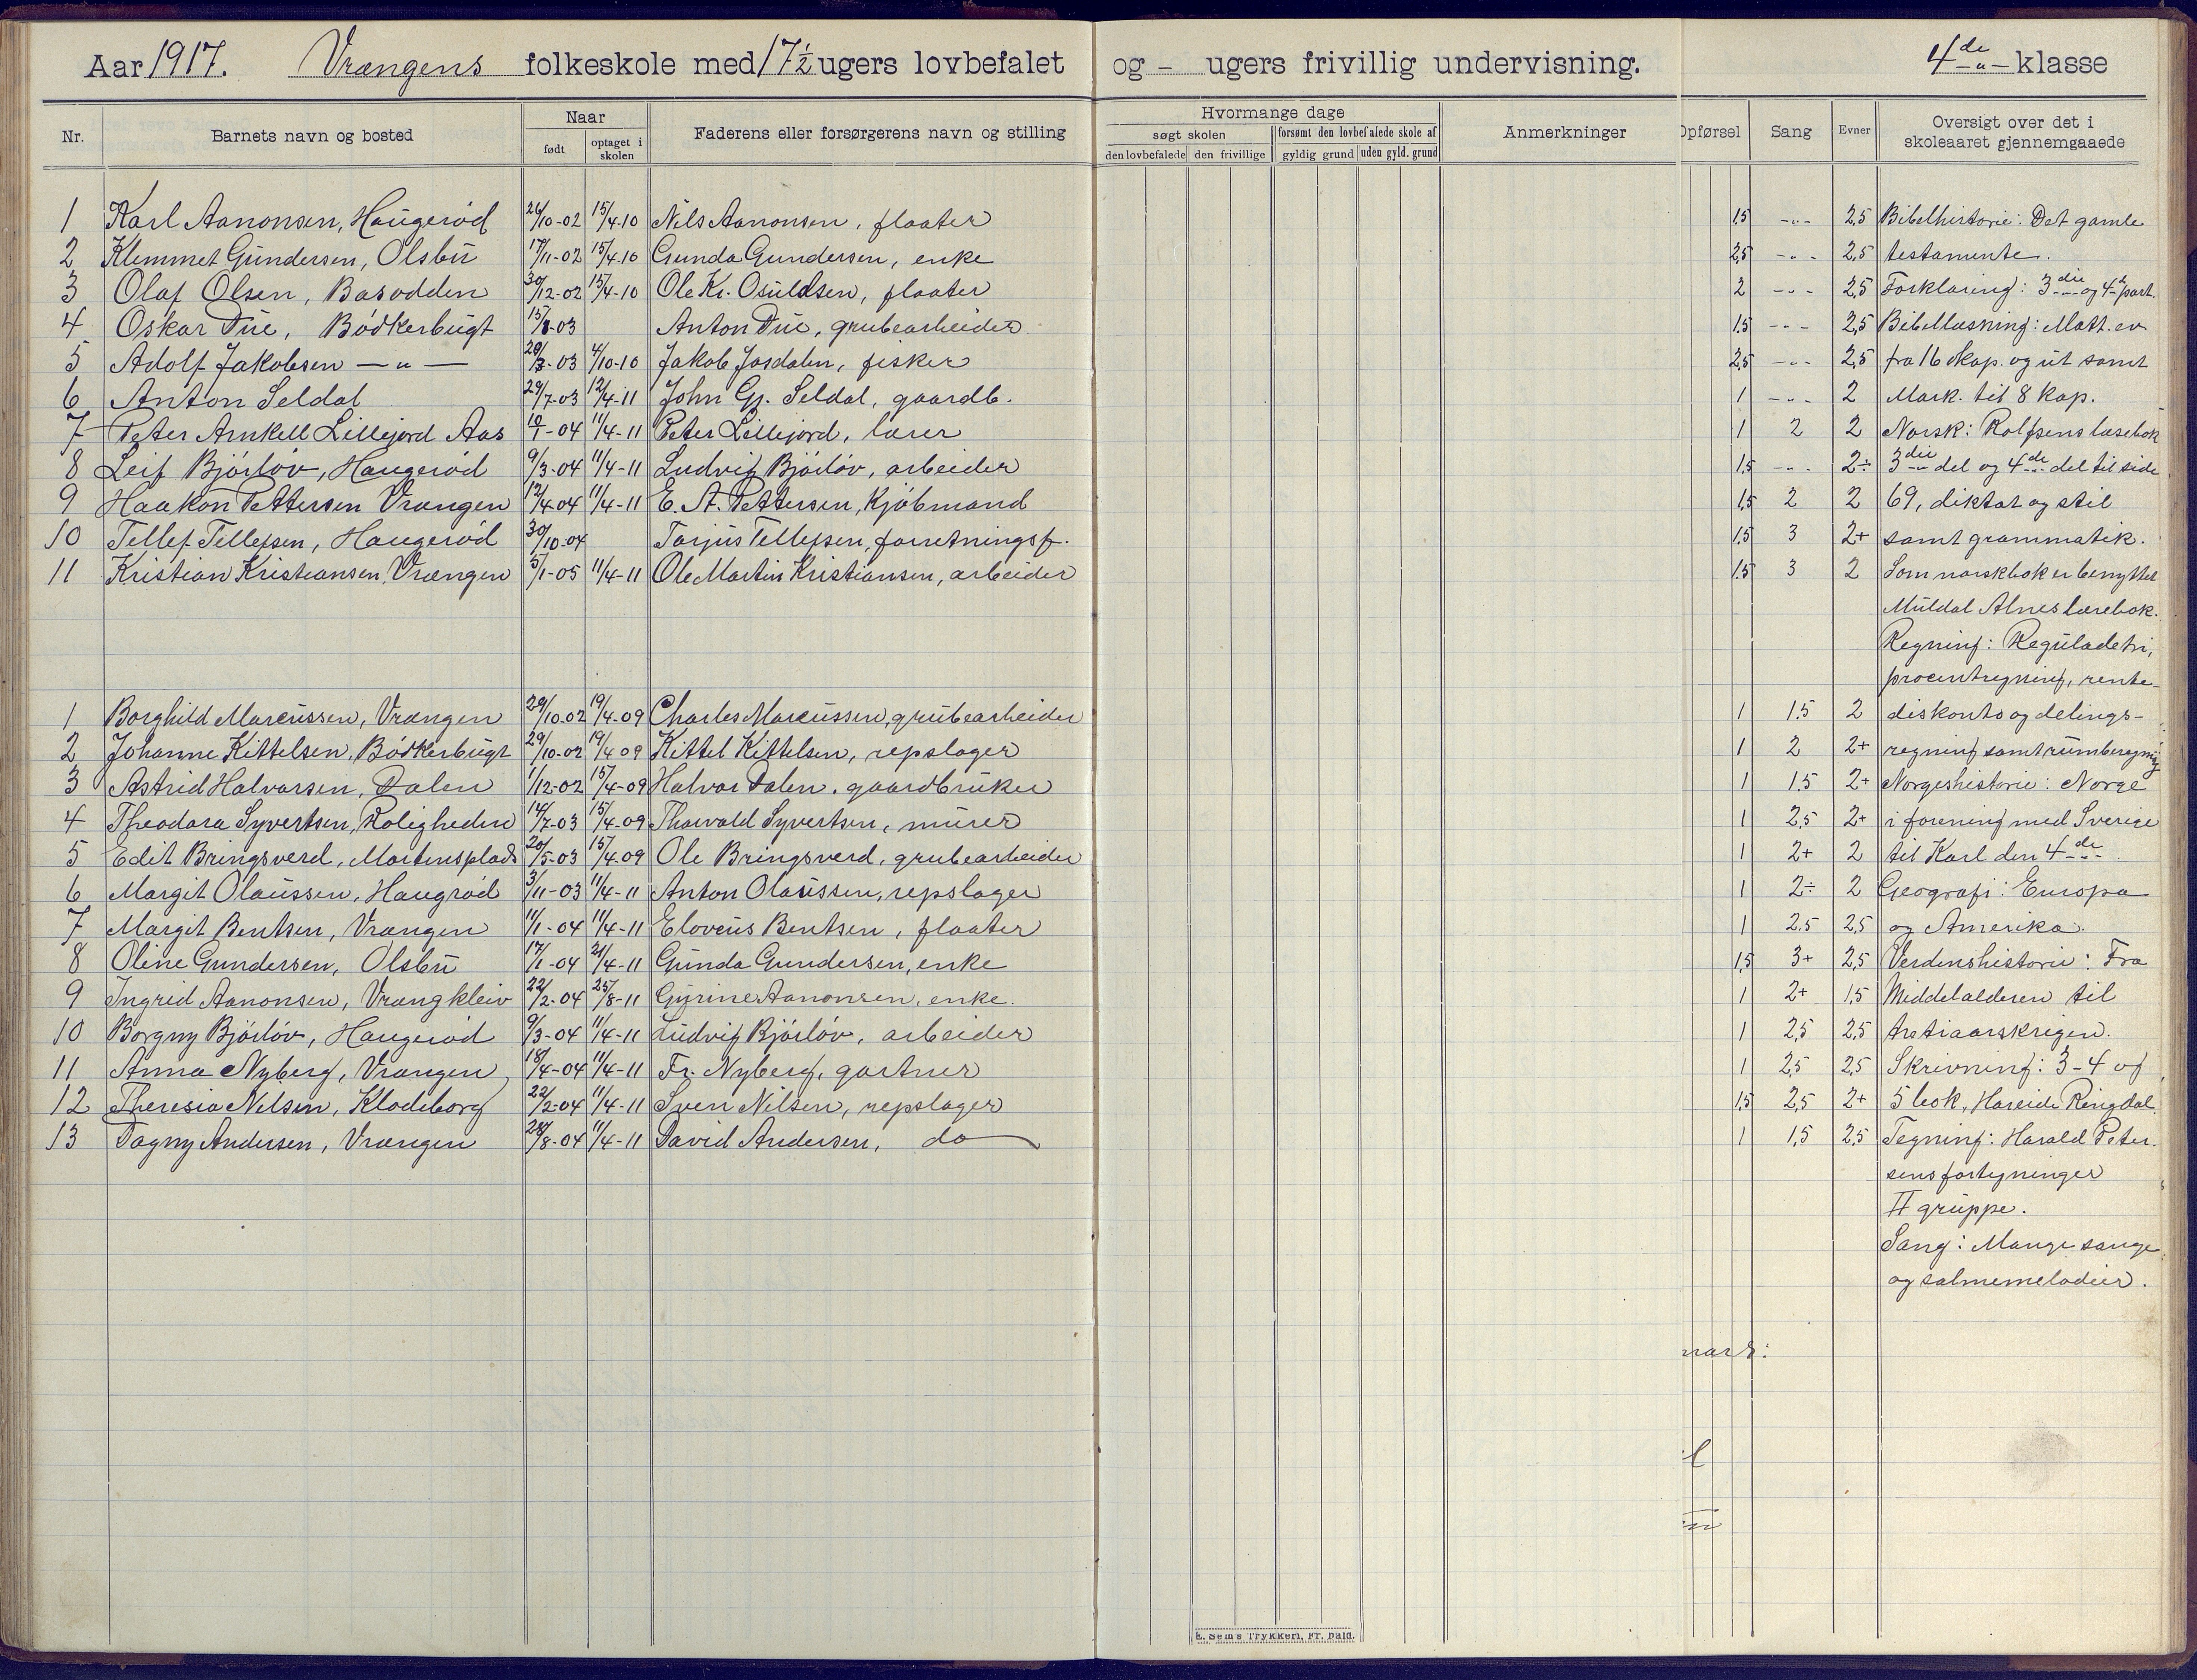 Aar 1917. Vrængens folkeskole med 17½ ugers lovbefalet og - ugers frivillig undervisning. 4de klasse
Nr. Barnets navn og bosted Naar født optaget i skolen Faderens eller forsørgerens navn og stilling Hvormange dage søgt skolen den lovbefalede den frivillige forsømt den lovbefalede skole af gyldig grund uden gyld. grund Anmerkninger Opførsel Sang Evner Oversigt over det i skoleaaret gjennemgaaede
1 Karl Aanonsen, Haugerød 26/10-02 15/4-10 Nils Aanonsen, flaater 1,5 -„- 2,5 Bibelhistorie: Det gamle
2 Klemmet Gundersen, Olsbu 17/11-02 15/4-10 Gunda Gundersen, enke 2,5 -„- 2,5 testamente.
3 Olaf Olsen, Basodden 30/12-02 15/4-10 Ole Kr. Osuldsen, flaater 2 -„- 2,5 Forklaring: 3die og 4de part.
4 Oskar Due, Bødkerbugt 15/8-03 Anton Due, grubearbeider 1,5 -„- 2,5 Bibellæsning: Matt. ev
5 Adolf Jakobsen -„- 20/3-03 4/10-10 Jakob Josdalen, fisker 2,5 -„- 2,5 fra 16 kap. og ut samt
6 Anton Seldal 29/7-03 12/4-11 John Gj. Seldal, gaardb. 1 -„- 2 Mark. til 8 kap.
7 Peter Arnkell Lillejord Aas 10/1-04 11/4-11 Peter Lillejord, lærer 1 2 2 Norsk: Rolfsens læsebok
8 Leif Bjørløv, Haugerød 9/3-04 11/4-11 Ludvig Bjørløv, arbeider 1,5 -„- 2÷ 3die del og 4de del til side
9 Haakon Pettersen Vrængen 12/4-04 11/4-11 E. A. Pettersen, Kjøbmand 1,5 2 2 69, diktat og stil
10 Tellef Tellefsen, Haugerød 30/10-04 Torjus Tellefsen, forretningsf. 1,5 3 2+ samt grammatik.
11 Kristian Kristiansen, Vrængen 5/1-05 11/4-11 Ole Martin Kristiansen, arbeider 1,5 3 2 Som norskbok er benyttet
Muldal Alnes lærebok.
Regning: Reguladetri,
procentregning, rente-
1 Borghild Marcussen, Vrængen 20/10-02 19/4-09 Charles Marcussen, grubearbeider 1 1,5 2 diskonto og delings-
2 Johanne Kittelsen, Bødkerbugt 29/10-02 19/4 09 Kittel Kittelsen, repslager 1 2 2+ regning samt rumberegning
3 Astrid Halvorsen, Dalen 1/12-02 15/4-09 Halvor Dalen, gaardbruker 1 1,5 2+ Norgeshistorie: Norge
4 Theodora Syvertsen, Roligheden 14/7-03 15/4-09 Thorvald Syvertsen, murer 1 2,5 2+ i forening med Sverige
5 Edit Bringsverd, Mortensplads 20/5-03 15/4-09 Ole Bringsverd, grubearbeider 1 2+ 2 til Karl den 4de.
6 Margit Olaussen, Haugrød 3/11-03 11/4-11 Anton Olaussen, repslager 1 2÷ 2 Geografi: Europa
7 Margit Bentsen, Vrængen 11/1-04 11/4-11 Elovius Bentsen, flaater 1 2,5 2,5 og Amerika.
8 Oline Gundersen, Olsbu 17/1-04 21/4-11 Gunda Gundersen, enke 1,5 3+ 2,5 Verdenshistorie: Fra
9 Ingrid Aanonsen, Vrængkleiv 22/2-04 25/8-11 Gurine Aanonsen, enke. 1 2+ 1,5 Middelalderen til
10 Borgny Bjørløv, Haugerød 9/3-04 11/4-11 Ludvig Bjørløv, arbeider 1 2,5 2,5 tretiaarskrigen.
11 Anna Nyberg, Vrængen 18/4-04 11/4-11 Fr. Nyberg, gartner 1 2,5 2,5 Skrivning: 3-4 og
12 Theresia Nilsen, Klodeborg 22/2-04 11/4-11 Sven Nilsen, repslager 1,5 2,5 2+ 5 bok, Hareide Ringdal.
13 Dagny Andersen, Vrængen 28/8-04 11/4-11 David Andersen, do 1 1,5 2,5 Tegning: Harald Peter-
sens fortegninger
II gruppe.
Sang: Mange sange
og salmemelodier.
E. Sem's Trykkeri, Fr. hald.